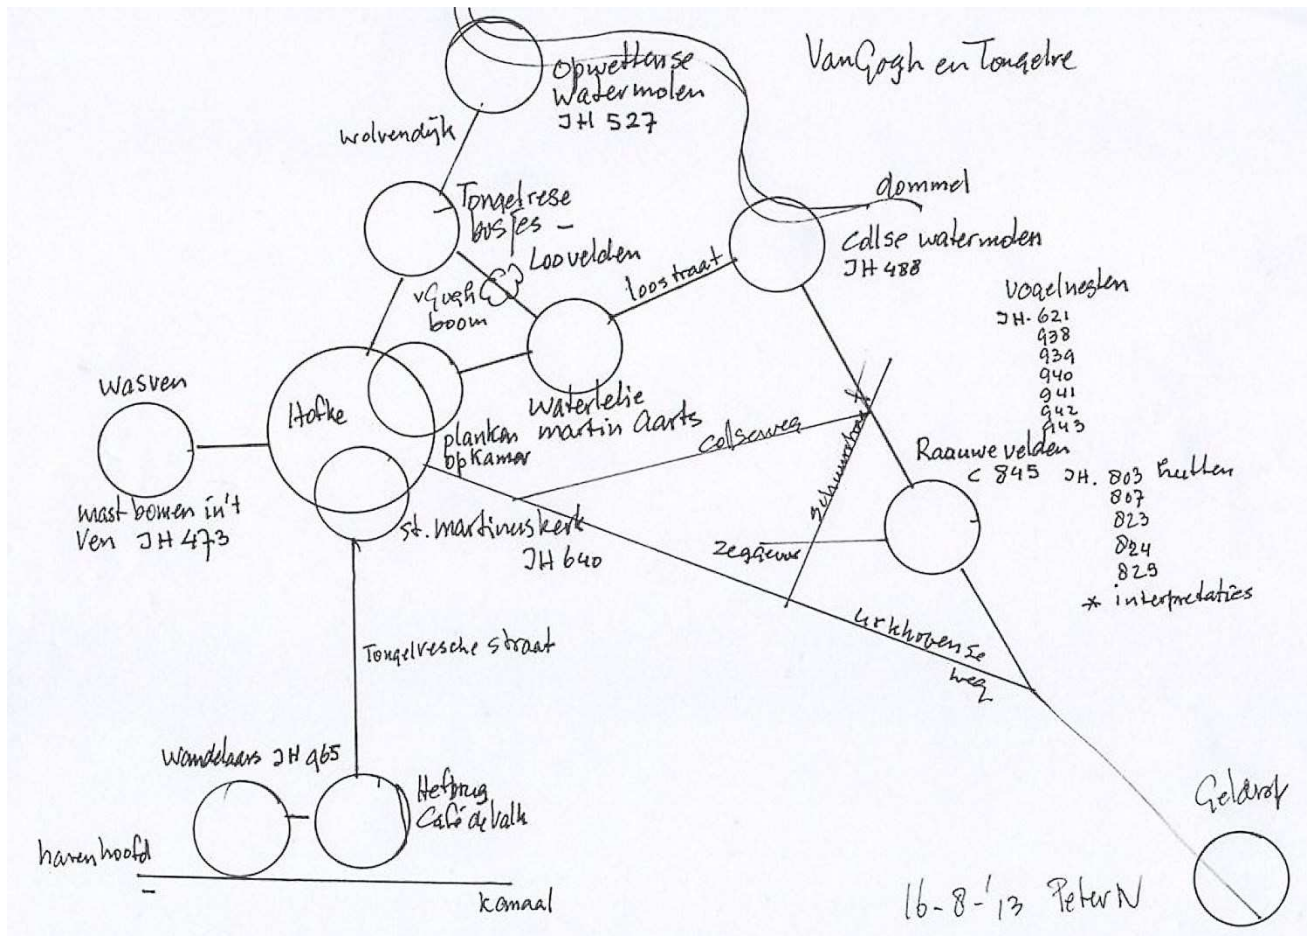 Van Gogh en Tongelre
Opwettense
watermolen
JH 527
wolvendijk
Tongelrese
bosjes
dommel
Collse watermolen
JH 488
Loovelden
loostraat
vGogh
boom
vogelnesten
JH. 621
938
939
940
941
942
943
wasven
Hofke
Waterlelie
martin Aarts
planken
opkamer
colseweg
schuurstraat
Raauwe velden
C 845 JH. 803 hutten
807
823
824
825
* interpretaties
mastbomen in't
Ven JH 473
st. martinuskerk
JH 640
urkhovense
weg
Tongelresche straat
Wandelaars JH 965
Hefbrug
Café de Valk
havenhoofd
kanaal
Geldrop
16-8-'13 Peter N